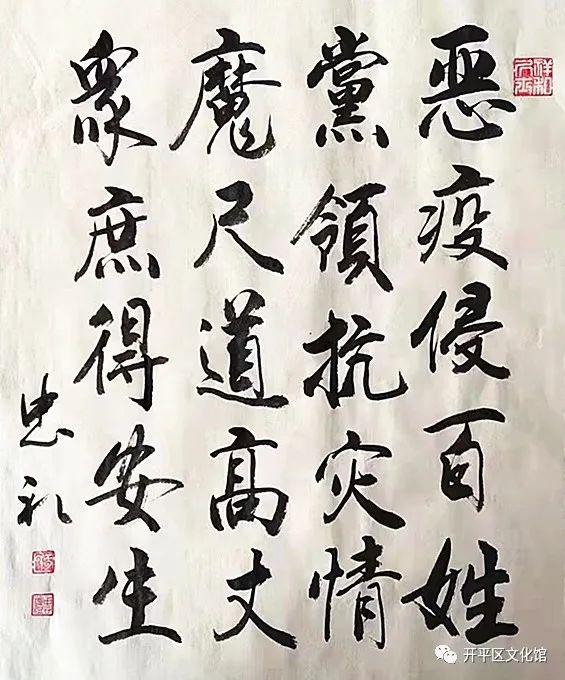 惡疫侵百姓
黨領抗灾情
魔尺道高丈
眾庶得安生
忠礼
祥和
开平区文化馆